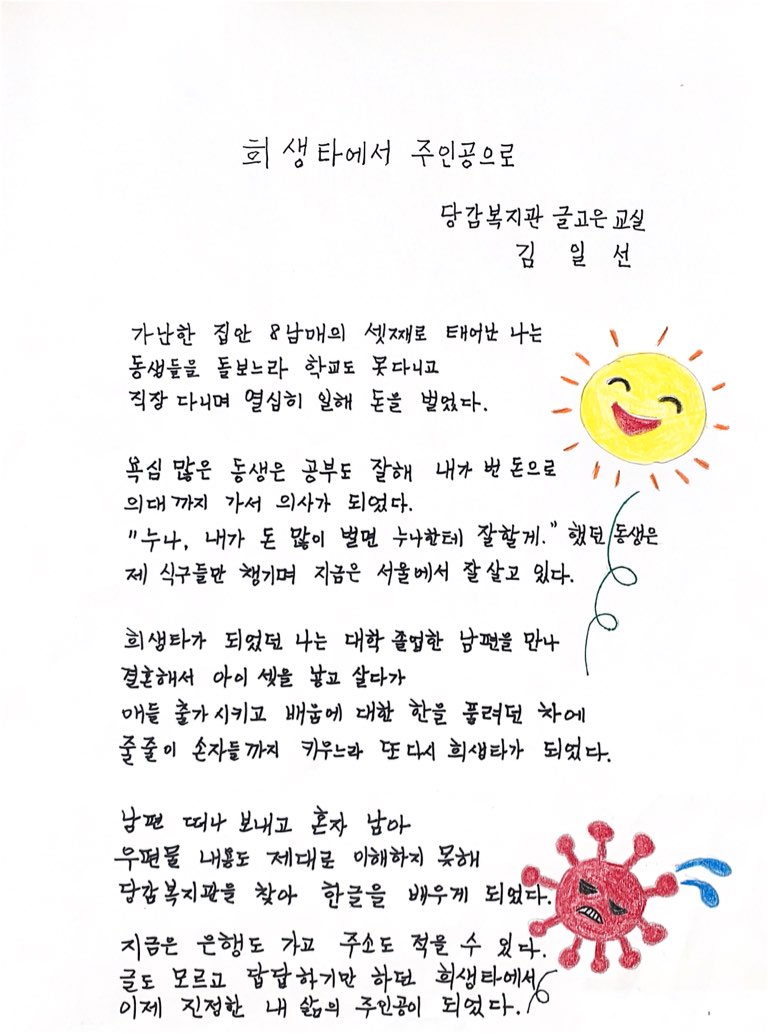 희생타에서 주인공으로
당감복지관 글고은 교실
김 일 선
가난한 집안 8남매의 셋째로 태어난 나는
동생들을 돌보느라 학교도 못다니고
직장 다니며 열심히 일해 돈을 벌었다.
욕심 많은 동생은 공부도 잘해 내가 번 돈으로
의대까지 가서 의사가 되었다.
"누나, 내가 돈 많이 벌면 누나한테 잘할게." 했던 동생은
제 식구들만 챙기며 지금은 서울에서 잘 살고 있다.
희생타가 되었던 나는 대학 졸업한 남편을 만나
결혼해서 아이 셋을 낳고 살다가
얘들 출가시키고 배움에 대한 한을 풀려던 차에
줄줄이 손자들까지 키우느라 또 다시 희생타가 되었다.
남편 떠나 보내고 혼자 남아
우편물 내용도 제대로 이해하지 못해
당감복지관을 찾아 한글을 배우게 되었다.
지금은 은행도 가고 주소도 적을 수 있다.
글도 모르고 답답하기만 하던 희생타에서
이제 진정한 내 삶의 주인공이 되었다.